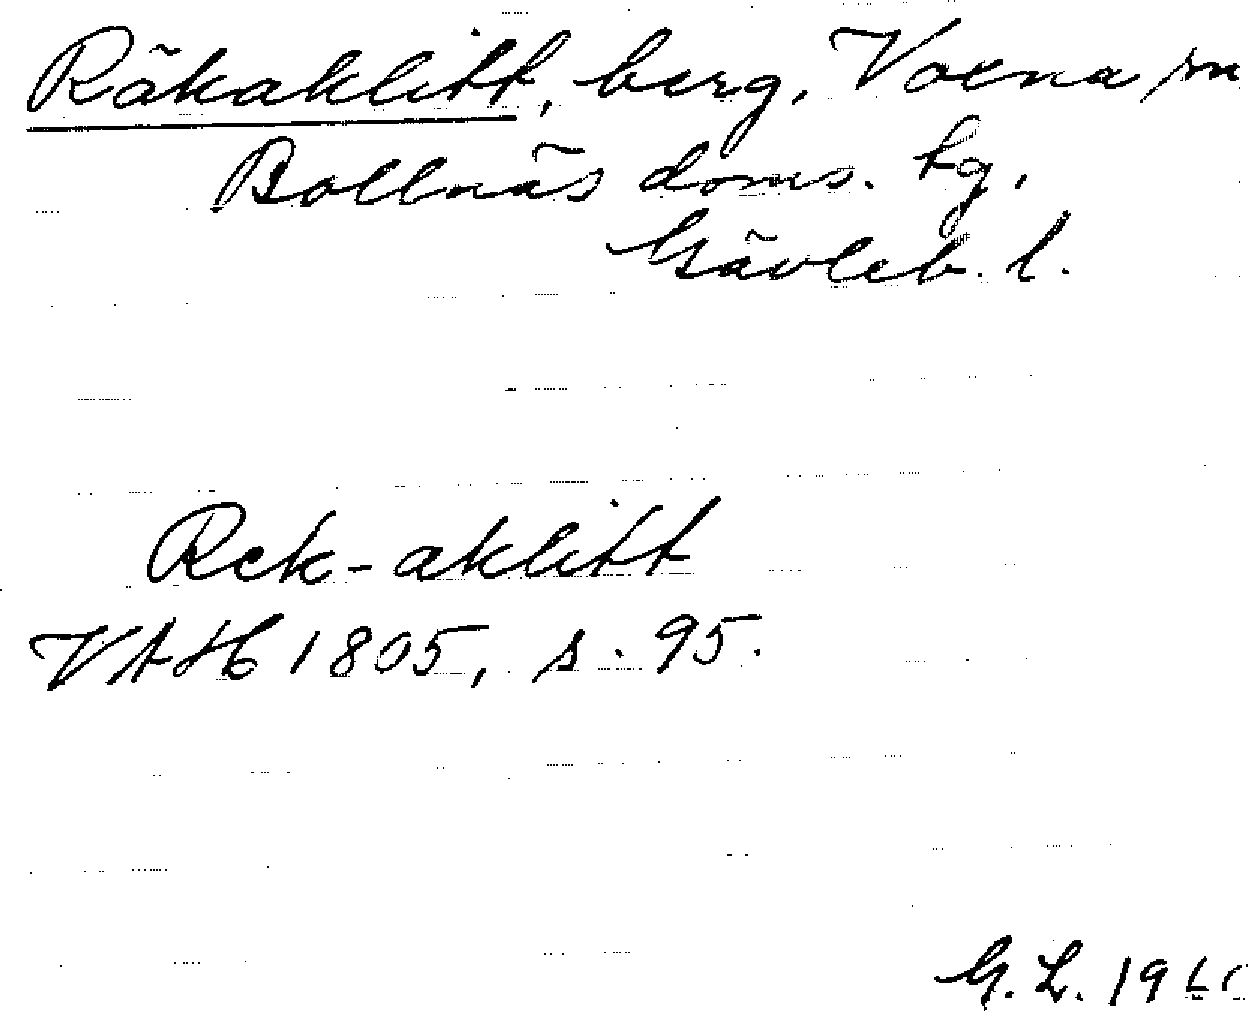 Räkaklitt, berg, Voxna sn
Bollnäs doms. hg.
Gävleb. l.
Rek-aklitt
VAH 1805, s. 95.
G. L. 1960